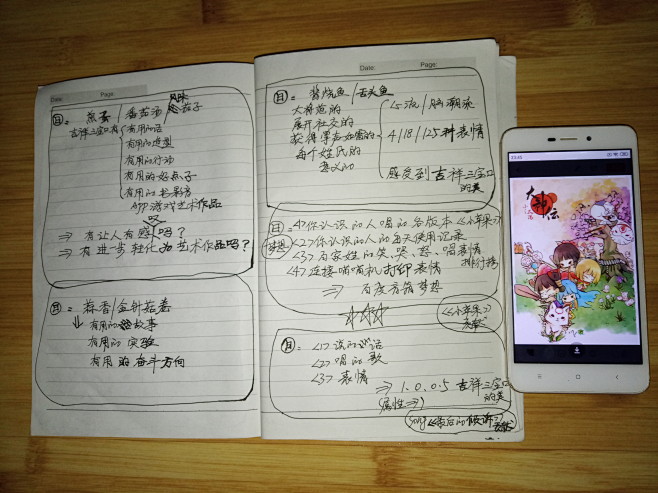 Date: Page:
目= 蒸蛋/番茄汤/风味茄子
吉祥三宝口有
有用的话
有用的造型
有用的行动
有用的好点子
APP游戏艺术作品
⇒ 有让人有感吗?
⇒ 有进步轻化为艺术作品吗?
目= 蒜香/金针菇姜
↓ 有用的故事
有用的实验
有用的奋斗方向
Date: Page:
目= 酱烧鱼/舌头鱼
大神范的
展开社交的
获得掌声如雷的
每个姓氏的
意义的
4/18/125种表情
感受到吉祥三宝口的美
目= 梦想
<1>你认识的人唱的各版本《小苹果》
<2>你认识的人的每天使用记录
<3>百家姓的笑、哭、怒、唱表情排行榜
<4>连接啪啪机打印表情
⇒ 百度营销梦想
☆☆☆
《小苹果》
目=
<1>说的话
<2>唱的歌
<3>表情
⇒ 1.0.0.5 吉祥三宝口的美
(属性⇒)